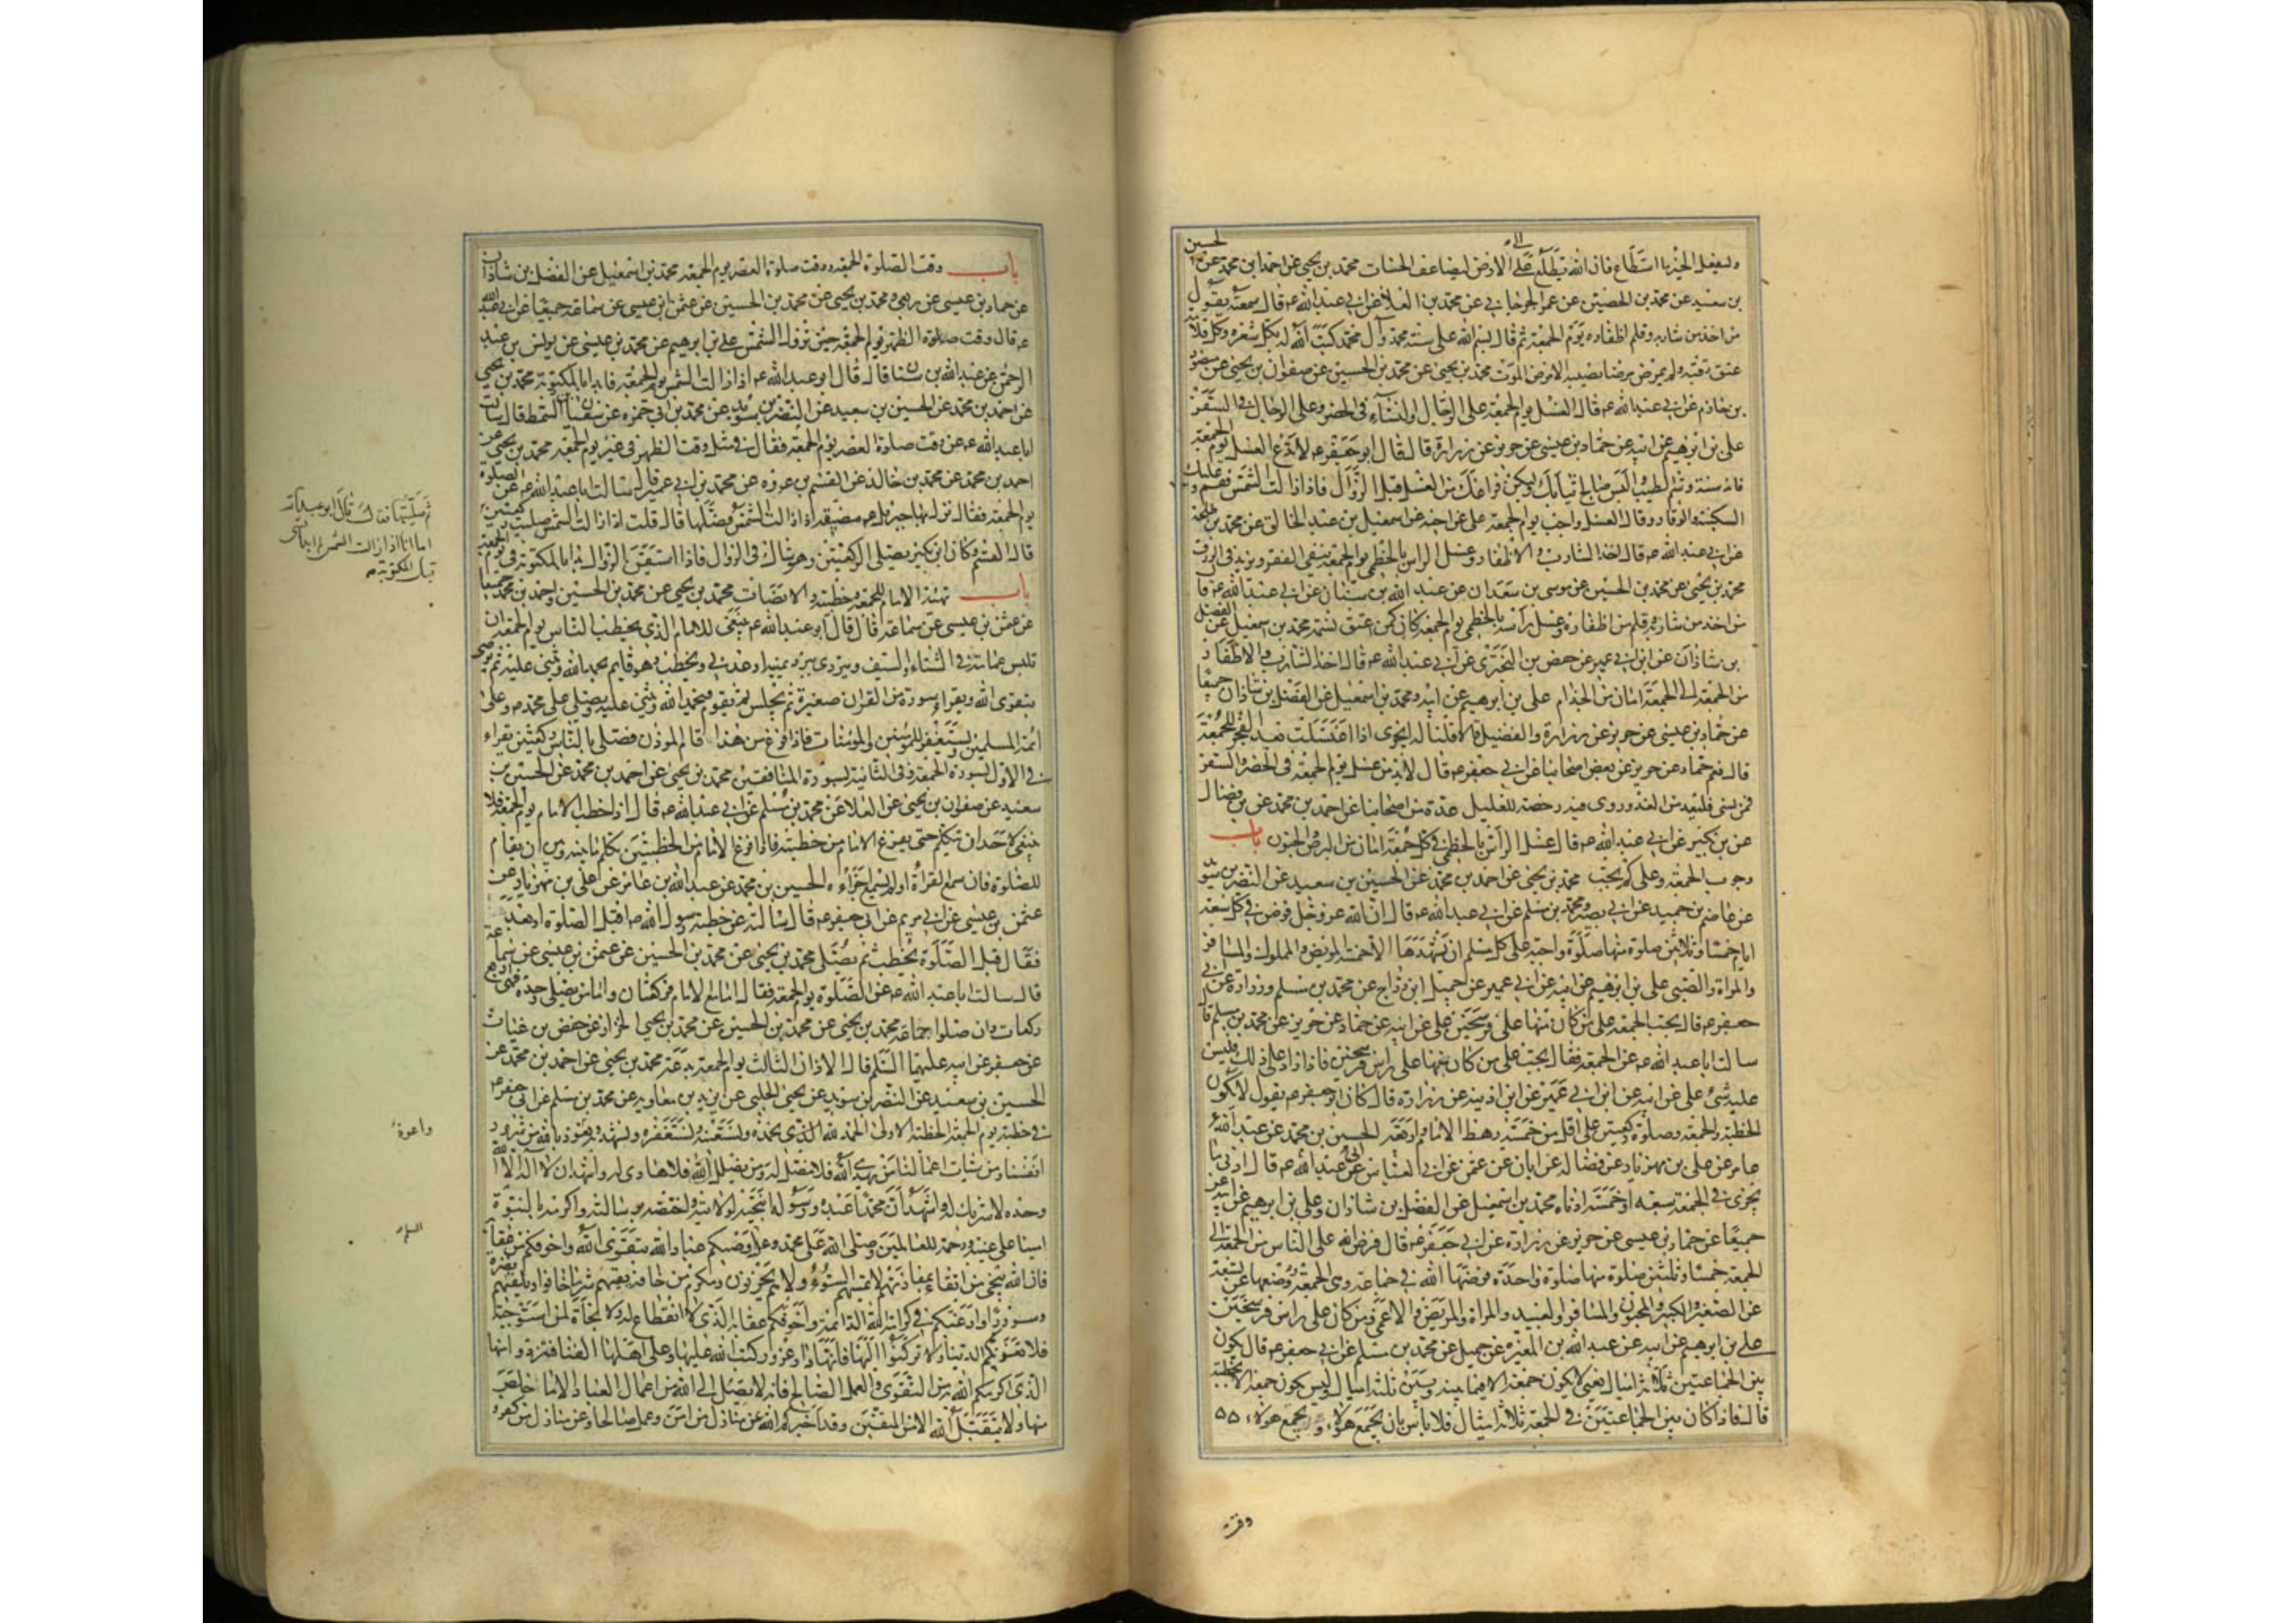 وليفعل الخير ما استطاع فان الله يطلع على الارض ليضاعف الحسنات محمد بن يحيى عن احمد ابن محمد عن الحسين
بن سعيد عن محمد بن الحصين عن عمر الجرجاني عن محمد بن العلا عن ابي عبد الله ع قال سمعته يقول
من اخذ من شاربه وقلم اظفاره يوم الجمعة ثم قال بسم الله على سنة محمد وآل محمد كتب الله له بكل شعره وكل قلامة
عتق رقبة ولم يمرض مرضا يصيبه الا مرض الموت محمد بن يحيى عن محمد بن الحسين عن صفوان بن يحيى عن منصور
بن حازم عن ابي عبد الله ع قال الغسل يوم الجمعة على الرجال والنساء في الحضر وعلى الرجال في السفر
علي بن ابرهيم عن ابيه عن حماد بن عيسى عن حريز عن زرارة قال قال ابو جعفر ع لا تدع الغسل يوم الجمعة
فانه سنة وشم الطيب والبس صالح ثيابك وليكن فراغك من الغسل قبل الزوال فاذا زالت الشمس فقم وعليك
السكينة والوقار وقال الغسل واجب يوم الجمعة علي عن اخيه عن اسمعيل بن عبد الخالق عن محمد بن طلحة
عن ابي عبد الله ع قال اخذ الشارب والاظفار وغسل الراس بالخطمي يوم الجمعة ينفي الفقر ويزيد في الرزق
محمد بن يحيى عن محمد بن الحسين عن موسى بن سعدان عن عبد الله بن سنان عن ابي عبد الله ع قال
من اخذ من شاربه وقلم من اظفاره وغسل رأسه بالخطمي يوم الجمعة كان كمن اعتق نسمة محمد بن اسمعيل عن الفضل
بن شاذان عن ابن ابي عمير عن حفص بن البختري عن ابي عبد الله ع قال اخذ الشارب والاظفار
من الجمعة الى الجمعة امان من الجذام علي بن ابرهيم عن ابيه ومحمد بن اسمعيل عن الفضل بن شاذان جميعا
عن حماد بن عيسى عن حريز عن زرارة والفضيل قالا قلنا له ايجزي اذا اغتسلت بعد الفجر للجمعة
قال نعم حماد عن حريز عن بعض اصحابنا عن ابي جعفر ع قال لا بد من غسل يوم الجمعة في الحضر والسفر
فمن نسي فليعد من الغد وروي فيه رخصة للعليل عدة من اصحابنا عن احمد بن محمد عن بن فضال
عن بن بكير عن ابي عبد الله ع قال غسل الرأس بالخطمي في كل جمعة امان من البرص والجنون باب
وجوب الجمعة وعلى كم يجب محمد بن يحيى عن احمد بن محمد عن الحسين بن سعيد عن النضر بن سويد
عن عاصم بن حميد عن ابي بصير ومحمد بن مسلم عن ابي عبد الله ع قال ان الله عز وجل فرض في كل سبعة
ايام خمسا وثلاثين صلوة منها صلوة واجبة على كل مسلم ان يشهدها الا خمسة المريض والمملوك والمسافر
والمراة والصبي علي بن ابرهيم عن ابيه عن ابي عمير عن جميل ابن دراج عن محمد بن مسلم وزرارة عن ابي
جعفر ع قال يجب الجمعة على من كان منها على فرسخين علي عن ابيه عن حماد عن حريز عن محمد بن مسلم قال
سالت ابا عبد الله ع عن الجمعة فقال يجب على من كان منها على راس فرسخين فاذا زاد على ذلك فليس
عليه شئ علي عن ابيه عن ابن ابي عمير عن ابن اذينه عن زرارة قال كان ابو جعفر ع يقول لا تكون
الخطبة والجمعة وصلوة ركعتين على اقل من خمسة رهط الامام واربعة الحسين بن محمد عن عبد الله بن
عامر عن علي بن مهزيار عن فضالة عن ابان عن عثمن عن ابي العباس عن ابي عبد الله ع قال ادنى ما
يجزي في الجمعة سبعة او خمسة ادناه محمد بن اسمعيل عن الفضل بن شاذان وعلي بن ابرهيم عن ابيه
جميعا عن حماد بن عيسى عن حريز عن زرارة عن ابي جعفر ع قال فرض الله على الناس من الجمعة الى
الجمعة خمسا وثلثين صلوة منها صلوة واحدة فرضها الله في جماعة وهي الجمعة ووضعها عن تسعة
عن الصغير والكبير والمجنون والمسافر والعبيد والمراة والمريض والاعمى ومن كان على راس فرسخين
علي بن ابرهيم عن ابيه عن عبد الله بن المغيرة عن جميل عن محمد بن مسلم عن ابي جعفر ع قال يكون
بين الجماعتين ثلثة اميال يعني لا يكون جمعة الا فيما بينه وبين ثلثة اميال وليس يكون جمعة الا بخطبة
قال فاذا كان بين الجماعتين في الجمعة ثلاثة اميال فلا باس بان يجمع هؤلاء ويجمع هؤلاء
باب وقت الصلوة الجمعة ووقت صلوة العصر يوم الجمعة محمد بن اسمعيل عن الفضل بن شاذان
عن حماد بن عيسى عن ربعي ومحمد بن يحيى عن محمد بن الحسين عن عثمن ابن عيسى عن سماعة جميعا عن ابي عبد الله
ع قال وقت صلوة الظهر يوم الجمعة حين تزول الشمس علي بن ابرهيم عن محمد بن عيسى عن يونس بن عبد
الرحمن عن عبد الله بن سنان قال قال ابو عبد الله ع اذا زالت الشمس يوم الجمعة فابدا بالمكتوبة محمد بن يحيى
عن احمد بن محمد عن الحسين بن سعيد عن النضر بن سويد عن محمد بن ابي حمزه عن سفيان السمط قال سالت
ابا عبد الله ع عن وقت صلاة العصر يوم الجمعة فقال في مثل وقت الظهر في غير يوم الجمعة محمد بن يحيى عن
احمد بن محمد عن محمد بن خالد عن القسم بن عروه عن محمد بن ابي عمير قال سالت ابا عبد الله ع عن الصلوة
يوم الجمعة فقال نزل بها جبرئيل ع مضيقة اذا زالت الشمس فصلها قال قلت اذا زالت الشمس صليت ركعتين
قال القسم وكان ابن بكير يصلي الركعتين وهو شاك في الزوال فاذا استيقن الزوال بدا بالمكتوبة في يوم الجمعة
باب تهيئة الامام للجمعة وخطبته والانصات محمد بن يحيى عن محمد بن الحسين واحمد بن محمد جميعا
عن عثمن بن عيسى عن سماعة قال قال ابو عبد الله ع ينبغي للامام الذي يخطب الناس يوم الجمعة ان
تلبس عمامة في الشتاء والصيف ويتردى ببرد يمنية او عدني ويخطب وهو قايم يحمد الله ويثني عليه ثم يوصي
بتقوى الله ويقراء سورة من القران صغيرة ثم يجلس ثم يقوم فيحمد الله ويثني عليه ويصلي على محمد ص وعلى
ائمة المسلمين ويستغفر للمؤمنين والمؤمنات فاذا فرغ من هذا قام المؤذن فصلى بالناس ركعتين يقراء
في الاولى بسورة الجمعة وفي الثانية بسورة المنافقين محمد بن يحيى عن احمد بن محمد عن الحسين بن
سعيد عن صفوان بن يحيى عن العلا عن محمد بن مسلم عن ابي عبد الله ع قال اذا خطب الامام يوم الجمعة فلا
ينبغي لاحد ان يتكلم حتى يفرغ الامام من خطبته فاذا فرغ الامام من الخطبتين تكلم ما بينه وبين ان يقام
للصلوة فان سمع القراءة او لم يسمع اجزاءه الحسين بن محمد عن عبد الله بن عامر عن علي بن مهزيار عن
عثمن بن عيسى عن ابي مريم عن ابي جعفر ع قال سالته عن خطبة رسول الله ص اقبل الصلوة او بعد
فقال قبل الصلوة يخطب ثم يصلي محمد بن يحيى عن محمد بن الحسين عن عثمن بن عيسى عن سماعة
قال سالت ابا عبد الله ع عن الصلوة يوم الجمعة فقال اما مع الامام فركعتان واما من يصلي وحده فهي اربع
ركعات وان صلوا جماعة محمد بن يحيى عن محمد بن الحسين عن محمد بن يحيى الخزاز عن حفص بن غياث
عن جعفر عن ابيه عليهما السلم قال الاذان الثالث يوم الجمعة بدعة محمد بن يحيى عن احمد بن محمد عن
الحسين بن سعيد عن النضر بن سويد عن يحيى الحلبي عن بريد بن معاوية عن محمد بن مسلم عن ابي جعفر ع
في خطبة يوم الجمعة الخطبة الاولى الحمد لله الذي نحمده ونستعينه ونستغفره ونستهديه ونعوذ بالله من شرور
انفسنا ومن سيات اعمالنا من يهدي الله فلا مضل له ومن يضلل الله فلا هادي له واشهد ان لا اله الا الله
وحده لا شريك له واشهد ان محمدا عبده ورسوله انتجبه لولايته واختصه برسالته واكرمه بالنبوة
امينا على غيبه ورحمة للعالمين وصلى الله على محمد وعلى اوصيكم عباد الله بتقوى الله واخوفكم من عقابه
فان الله ينجي من اتقاه بمفازتهم لا يمسهم السوء ولا هم يحزنون ويكرم من خافه يقيهم شر ما خافوا ويلقيهم نضرة
وسرورا وارغبكم في كرامة الله الدائمة واخوفكم عقابه الذي لا انقطاع له ولا نجاة لمن استوجبه
فلا تغرنكم الدنيا ولا تركنوا اليها فانها دار غرور كتب الله عليها وعلى اهلها الفنا فتزودوا منها
الذي اكرمكم الله من التقوى والعمل الصالح فانه لا يصل الى الله من اعمال العباد الا ما خلص
منها ولا يتقبل الله الا من المتقين وقد اخبركم الله عن منازل من امن وعمل صالحا وعن منازل من كفر و
ثم صليتها فقال قال ابو عبد الله
اما انا اذا زالت الشمس لم ابدا بشي
قبل المكتوبة